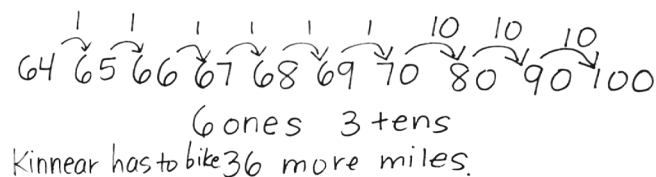 1 1 1 1 1 1 10 10 10
64 65 66 67 68 69 70 80 90 100
6 ones 3 tens
Kinnear has to bike 36 more miles.